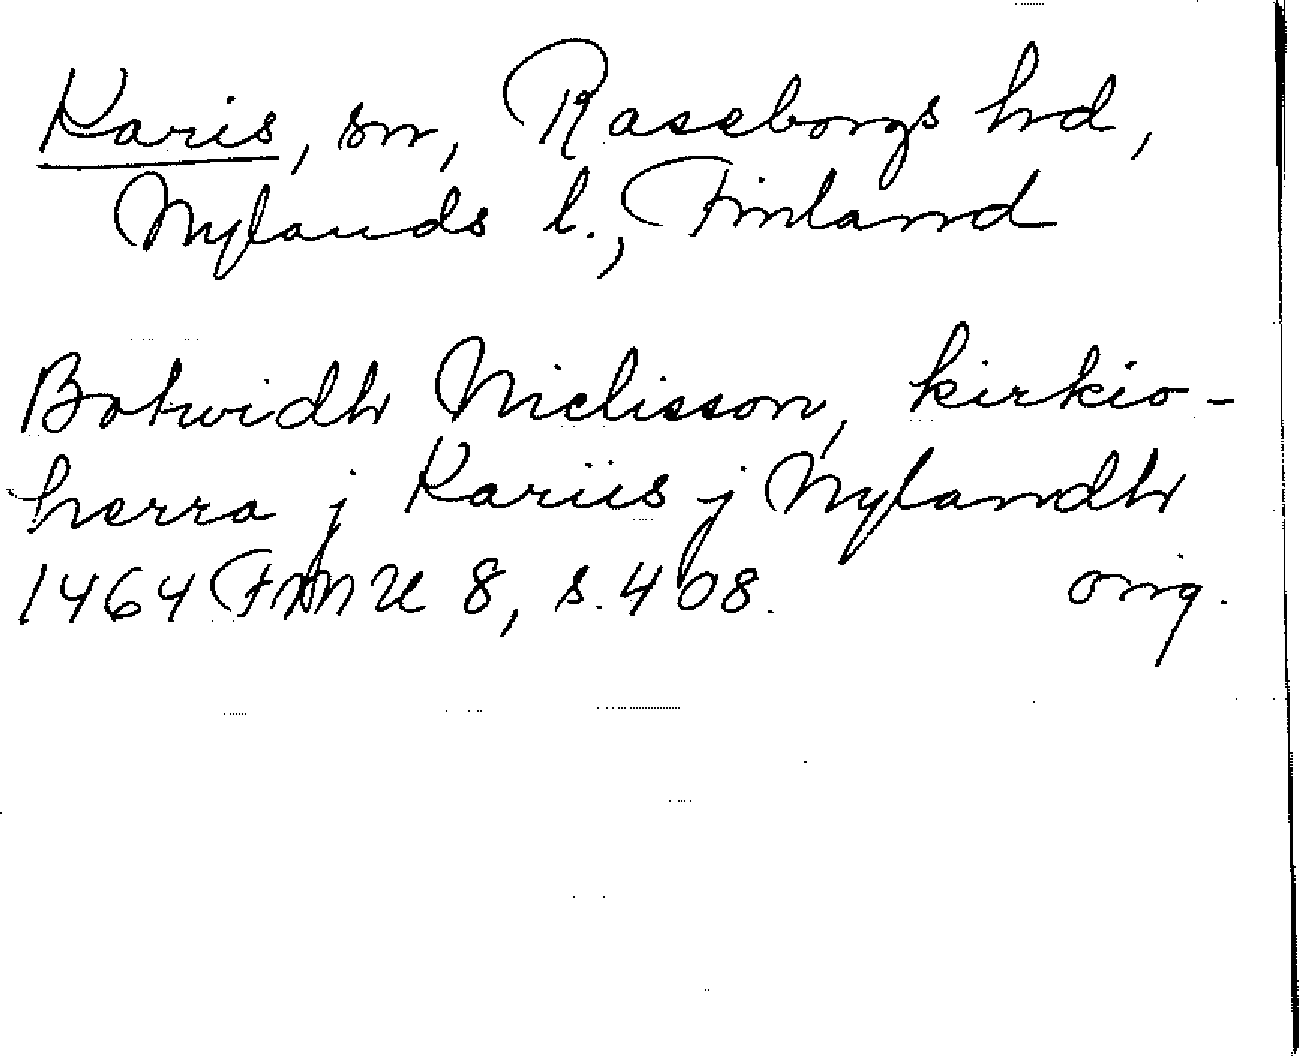 Karis, sn, Raseborgs hd,
Nylands l., Finland
Botwidh Niclisson, kirkio-
herra j Kariis j Nylandh
1464 FMU 8, s. 408. orig.